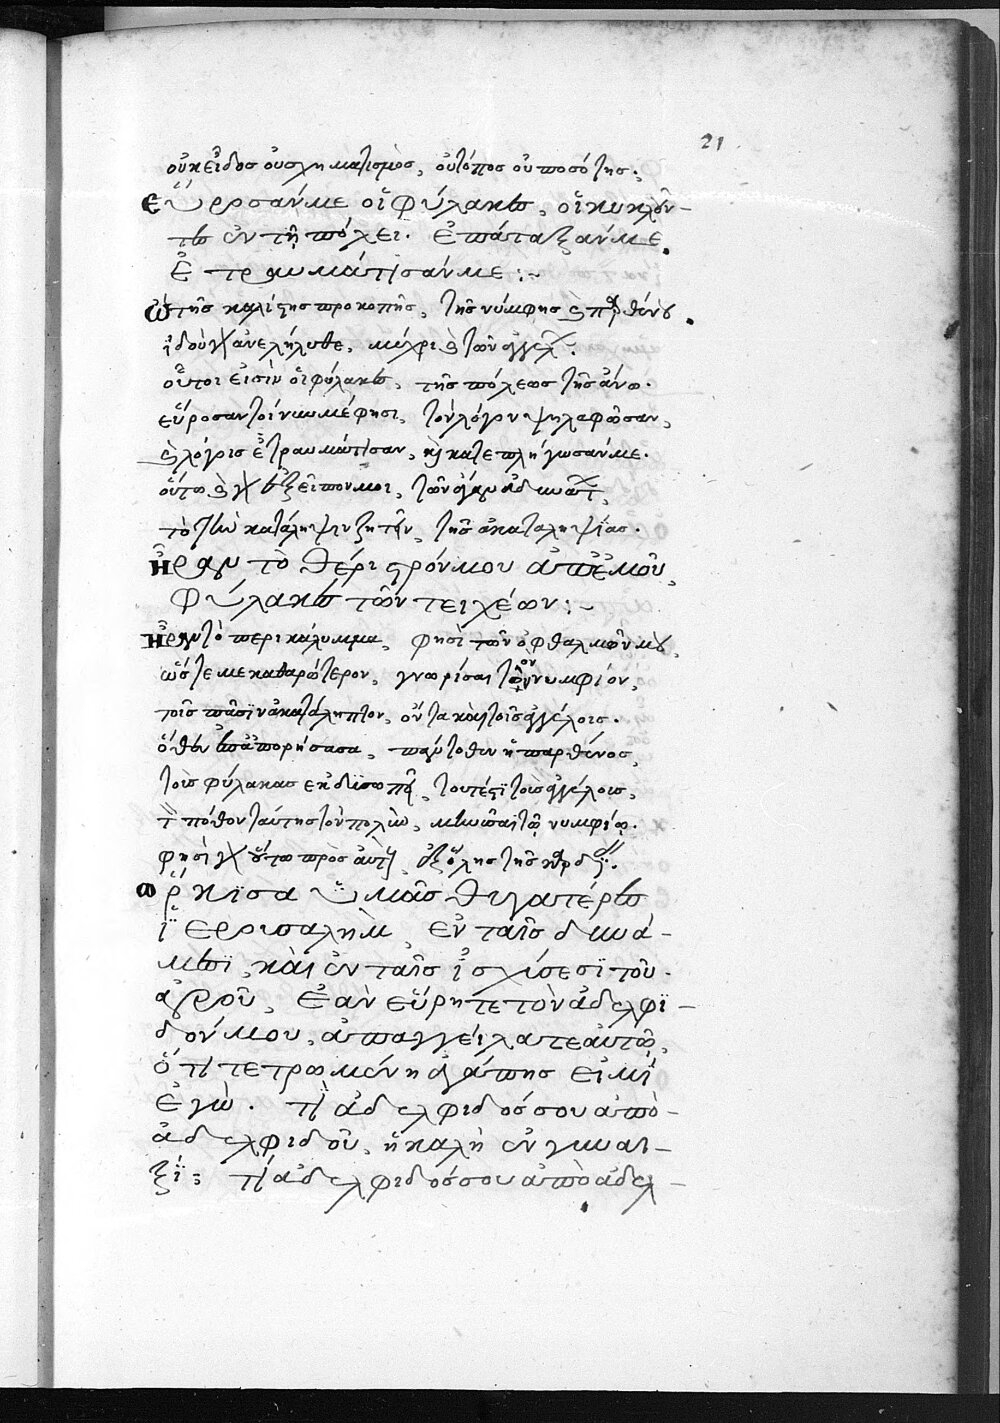 21
οὐκ εἶδος οὐ σχηματισμὸς, οὐ τόπος οὐ ποσότης.
Εὕροσάν με οἱ φύλακες, οἱ κυκλοῦν-
τες ἐν τῇ πόλει. Ἐπάταξάν με.
Ἐτραυμάτισάν με:~
Ὢ τῆς καλίστης προκοπῆς, τῆς νύμφης καὶ παρθένου.
ἰδοὺ γὰρ ἀνελήλυθε, μέχρι καὶ τῶν ἀγγέλων.
οὗτοι εἰσὶν οἱ φύλακες, τῆς πόλεως τῆς ἄνω.
εὕροσαν τοίνυν μέ φησι, τὸν λόγον ψηλαφῶσαν,
καὶ λόγοις ἐτραυμάτισαν, καὶ κατεπλήγωσάν με.
οὕτω καὶ γὰρ ἐξεῖπον μοι, τῶν ἀγαν ἀδυνάτων,
τὸ τὴν κατάληψιν ζητεῖν, τῆς ἀκαταληψίας.
Ἦραν τὸ θέριστρόν μου ἀπ' ἐμοῦ,
Φύλακες τῶν τειχέων:~
Ἦραν τὸ περικάλυμμα, φησὶ τῶν ὀφθαλμῶν μου,
ὥστε με καθαρώτερον, γνωρίσαι τὸν νυμφίον,
τοῖς πᾶσιν ἀκατάληπτον, ὄντα καὶ τοῖς ἀγγέλοις.
ὅθεν ἐπαπορήσασα, παντοθεν ἡ παρθένος,
τοῖς φύλαξας ἐκδυσωπεῖ, τουτέστι τοῖς ἀγγέλοις,
τὸν πόθον ταύτης τὸν πολὺν, μηνῦσαι τῷ νυμφίῳ.
φησὶ γὰρ οὕτω πρὸς αὐτὰς, ἐξ ὅλης τῆς καρδίας:
Ὥρκισα ὑμᾶς θυγατέρες
Ἱερουσαλὴμ, ἐν ταῖς δυνά-
μεσι, καὶ ἐν ταῖς ἰσχύσεσι τοῦ
ἀγροῦ, Ἐὰν εὕρητε τὸν ἀδελφι-
δόν μου, ἀπαγγείλατε αὐτῷ,
ὅτι τετρωμένη ἀγάπης εἰμὶ
ἐγὼ. τί ἀδελφιδός σου ἀπὸ
ἀδελφιδοῦ, ἡ καλὴ ἐν γυναι-
ξί: τί ἀδελφιδός σου ἀπὸ ἀδελ-